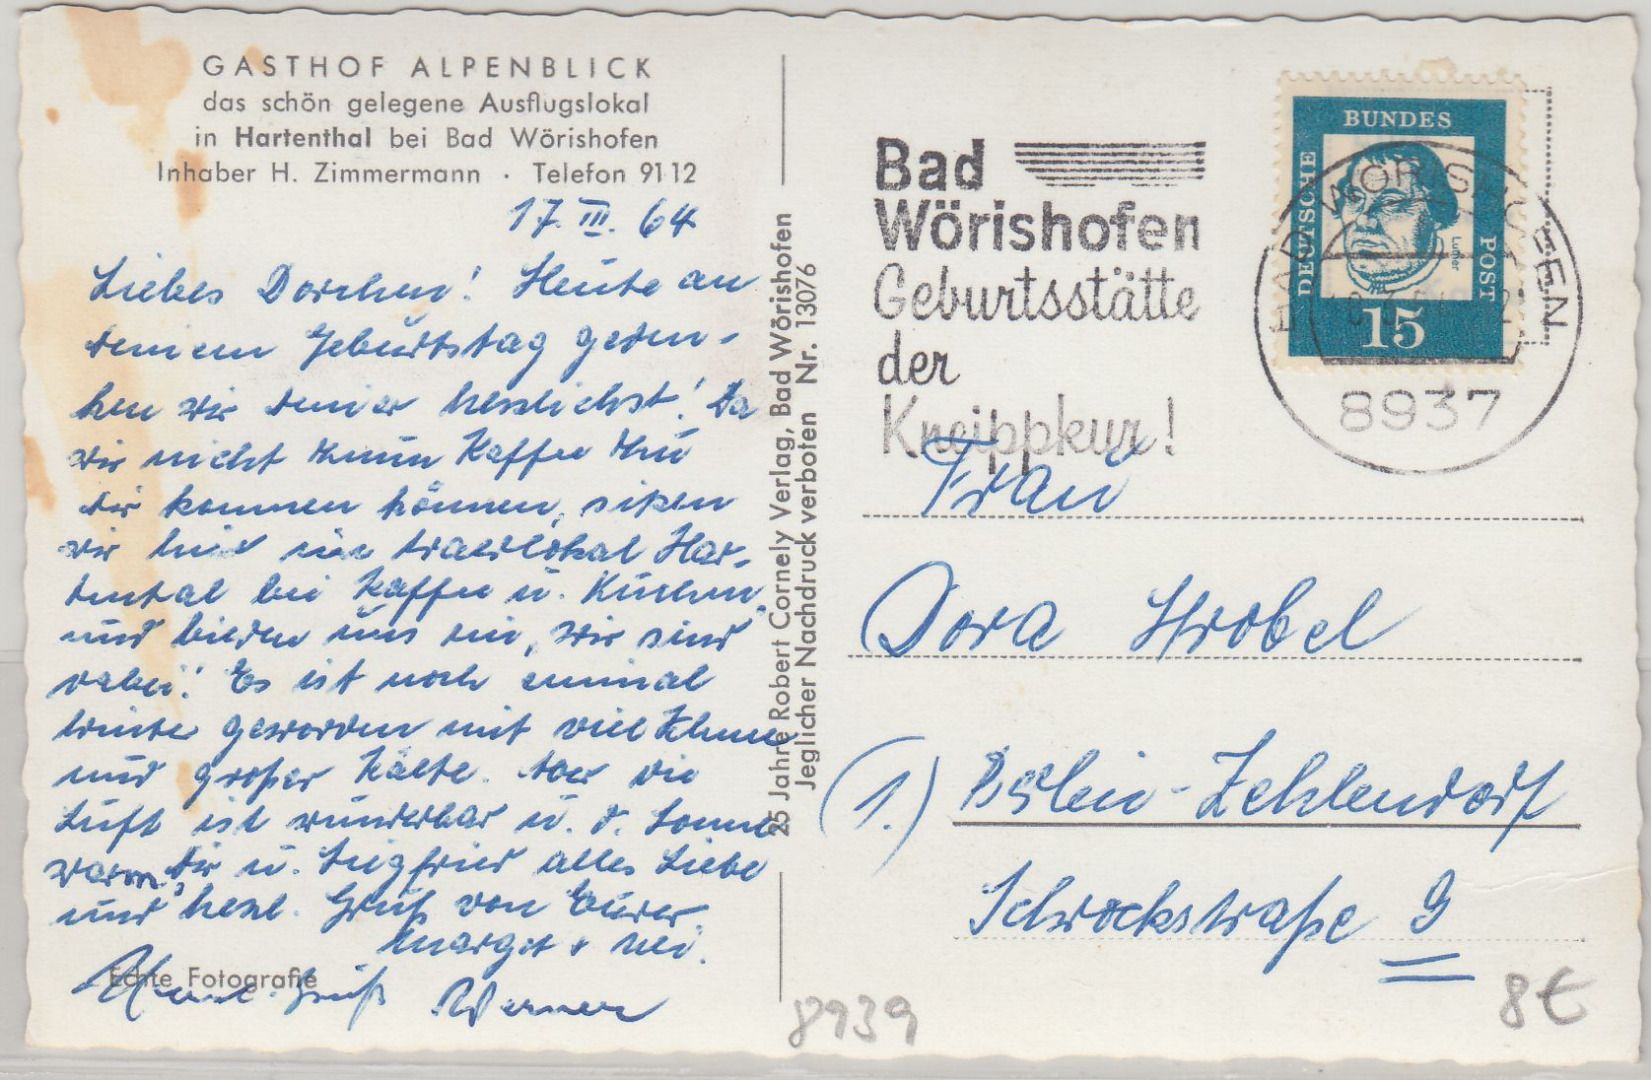 GASTHOF ALPENBLICK
das schön gelegene Ausflugslokal
in Hartenthal bei Bad Wörishofen
Inhaber H. Zimmermann · Telefon 91 12
17. III. 64
Liebes Dorchen! Heute an
deinem Geburtstag geden-
ken wir deiner herzlichst! Da
wir nicht zum Kaffee zu
dir kommen können, sitzen
wir hier im Har-
tental bei Kaffee u. Kuchen
und bilden uns ein, wir sind
dabei! Es ist noch einmal
Winter geworden mit viel Schnee
und großer Kälte. Aber die
Luft ist wunderbar u. d. Sonne
warm. Dir u. Siegfried alles Liebe
und herzl. Gruß von Eurer
Margot
Gruß Werner
Echte Fotografie
25 Jahre Robert Cornely Verlag, Bad Wörishofen
Jeglicher Nachdruck verboten Nr. 13076
Bad
Wörishofen
Geburtsstätte
der
Kneippkur!
DEUTSCHE
BUNDES
POST
Luther
15
BAD WÖRISHOFEN
8937
Frau
Dora Strobel
(1.) Berlin-Zehlendorf
Schrockstraße 9
8939
8€